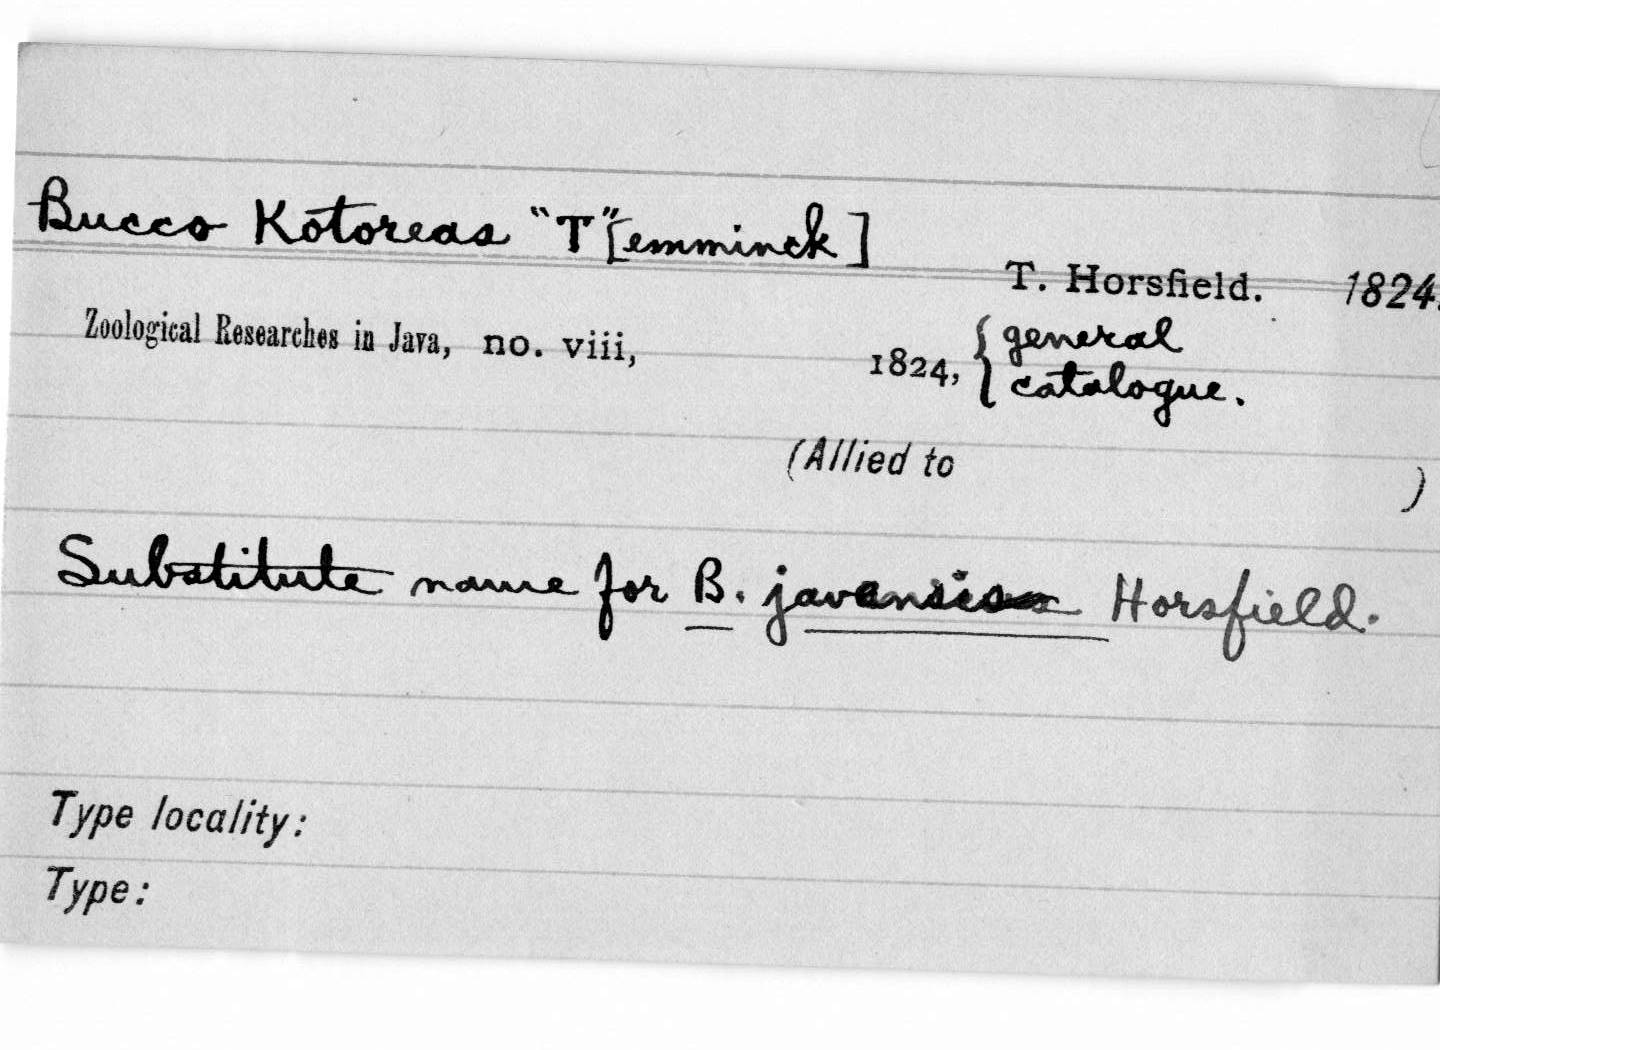 Bucco Kotoreas "T"[emminck]
T. Horsfield. 1824.
Zoological Researches in Java, no. viii, 1824, { general
catalogue.
(Allied to )
Substitute name for B. javensis Horsfield.
Type locality:
Type: